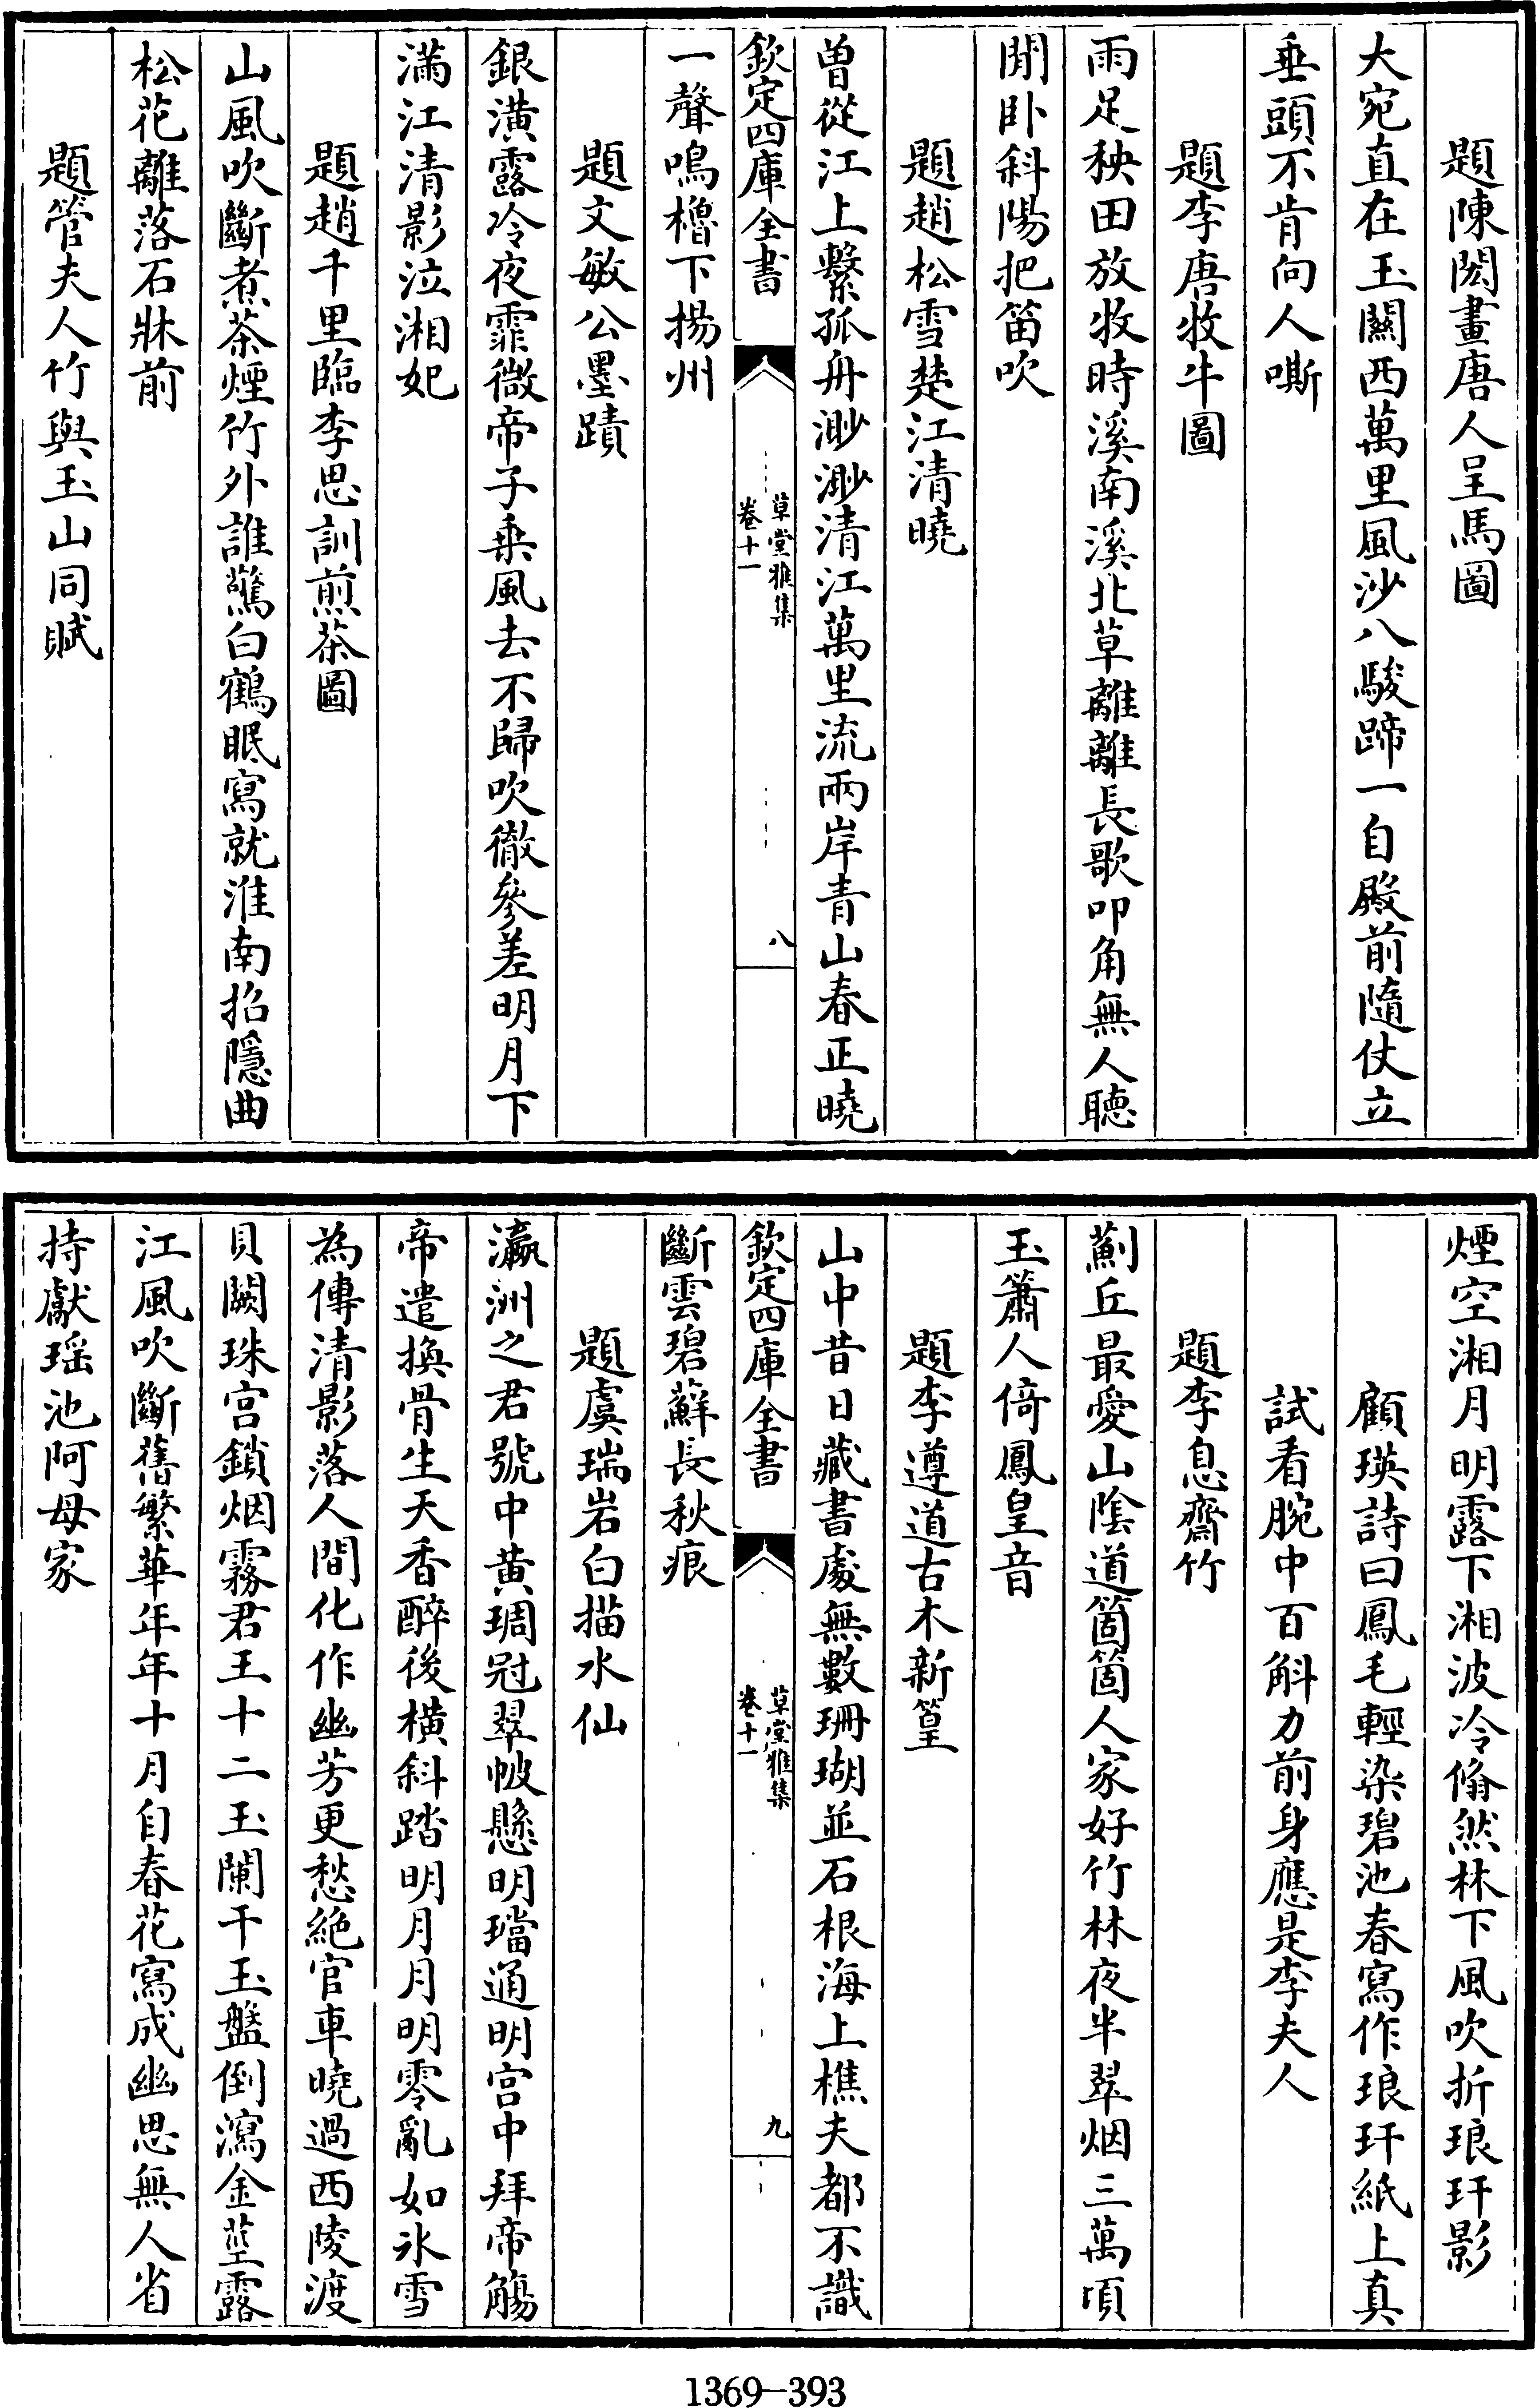 題陳閎畫唐人呈馬圖
大宛直在玉關西萬里風沙八駿蹄一自殿前隨仗立
垂頭不肯向人嘶
題李唐牧牛圖
雨足秧田放牧時溪南溪北草離離長歌叩角無人聽
閒卧斜陽把笛吹
題趙松雪楚江清曉
曽從江上繫孤舟渺渺清江萬里流兩岸青山春正曉
欽定四庫全書
草堂雅集
卷十一
八
一聲鳴櫓下揚州
題文敏公墨蹟
銀潢露冷夜霏微帝子乗風去不歸吹徹參差明月下
滿江清影泣湘妃
題趙千里臨李思訓煎茶圖
山風吹斷煮茶煙竹外誰驚白鶴眠寫就淮南招隱曲
松花離落石牀前
題管夫人竹與玉山同賦
煙空湘月明露下湘波冷翛然林下風吹折琅玕影
顧瑛詩曰鳳毛輕染碧池春寫作琅玕紙上真
試看腕中百斛力前身應是李夫人
題李息齋竹
薊丘最愛山陰道箇箇人家好竹林夜半翠烟三萬頃
玉簫人倚鳳皇音
題李遵道古木新篁
山中昔日藏書處無數珊瑚並石根海上樵夫都不識
欽定四庫全書
草堂雅集
卷十一
九
斷雲碧蘚長秋痕
題虞瑞岩白描水仙
瀛洲之君號中黄琱冠翠帔懸明璫通明宫中拜帝觴
帝遣換骨生天香醉後橫斜踏明月月明零亂如氷雪
為傳清影落人間化作幽芳更愁絶官車曉過西陵渡
貝闕珠宫鎖烟霧君王十二玉闌干玉盤倒瀉金莖露
江風吹斷舊繁華年年十月自春花寫成幽思無人省
持獻瑶池阿母家
1369-393